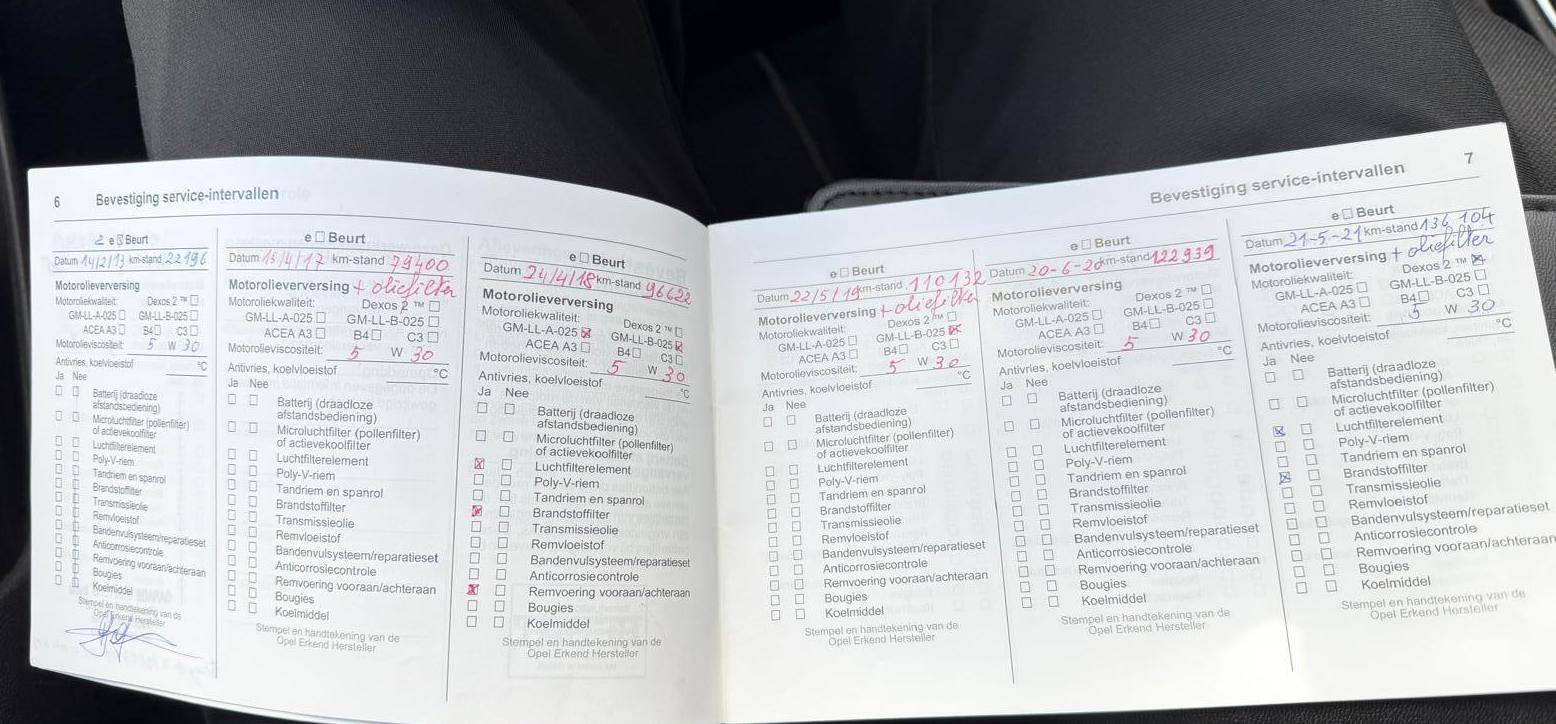 6 Bevestiging service-intervallen
2 e ☒ Beurt
Datum 14/2/13 km-stand 22196
Motorolieverversing
Motoroliekwaliteit: Dexos 2 ™ ☐
GM-LL-A-025 ☐ GM-LL-B-025 ☐
ACEA A3 ☐ B4 ☐ C3 ☐
Motorolieviscositeit: 5 W 30
Antivries, koelvloeistof °C
Ja Nee
☐ ☐ Batterij (draadloze
afstandsbediening)
☐ ☐ Microluchtfilter (pollenfilter)
of actievekoolfilter
☐ ☐ Luchtfilterelement
☐ ☐ Poly-V-riem
☐ ☐ Tandriem en spanrol
☐ ☐ Brandstoffilter
☐ ☐ Transmissieolie
☐ ☐ Remvloeistof
☐ ☐ Bandenvulsysteem/reparatieset
☐ ☐ Anticorrosiecontrole
☐ ☐ Remvoering vooraan/achteraan
☐ ☐ Bougies
☐ ☐ Koelmiddel
Stempel en handtekening van de
Opel Erkend Hersteller
e ☐ Beurt
Datum 13/4/17 km-stand 79400
Motorolieverversing + oliefilter
Motoroliekwaliteit: Dexos 2 ™ ☐
GM-LL-A-025 ☐ GM-LL-B-025 ☐
ACEA A3 ☐ B4 ☐ C3 ☐
Motorolieviscositeit: 5 W 30
Antivries, koelvloeistof °C
Ja Nee
☐ ☐ Batterij (draadloze
afstandsbediening)
☐ ☐ Microluchtfilter (pollenfilter)
of actievekoolfilter
☐ ☐ Luchtfilterelement
☐ ☐ Poly-V-riem
☐ ☐ Tandriem en spanrol
☐ ☐ Brandstoffilter
☐ ☐ Transmissieolie
☐ ☐ Remvloeistof
☐ ☐ Bandenvulsysteem/reparatieset
☐ ☐ Anticorrosiecontrole
☐ ☐ Remvoering vooraan/achteraan
☐ ☐ Bougies
☐ ☐ Koelmiddel
Stempel en handtekening van de
Opel Erkend Hersteller
e ☐ Beurt
Datum 24/4/18 km-stand 96622
Motorolieverversing
Motoroliekwaliteit: Dexos 2 ™ ☐
GM-LL-A-025 ☒ GM-LL-B-025 ☒
ACEA A3 ☐ B4 ☐ C3 ☐
Motorolieviscositeit: 5 W 30
Antivries, koelvloeistof °C
Ja Nee
☐ ☐ Batterij (draadloze
afstandsbediening)
☐ ☐ Microluchtfilter (pollenfilter)
of actievekoolfilter
☒ ☐ Luchtfilterelement
☐ ☐ Poly-V-riem
☐ ☐ Tandriem en spanrol
☒ ☐ Brandstoffilter
☐ ☐ Transmissieolie
☐ ☐ Remvloeistof
☐ ☐ Bandenvulsysteem/reparatieset
☐ ☐ Anticorrosiecontrole
☒ ☐ Remvoering vooraan/achteraan
☐ ☐ Bougies
☐ ☐ Koelmiddel
Stempel en handtekening van de
Opel Erkend Hersteller
Bevestiging service-intervallen 7
e ☐ Beurt
Datum 22/5/19 km-stand 110132
Motorolieverversing + oliefilter
Motoroliekwaliteit: Dexos 2 ™ ☐
GM-LL-A-025 ☐ GM-LL-B-025 ☒
ACEA A3 ☐ B4 ☐ C3 ☐
Motorolieviscositeit: 5 W 30
Antivries, koelvloeistof °C
Ja Nee
☐ ☐ Batterij (draadloze
afstandsbediening)
☐ ☐ Microluchtfilter (pollenfilter)
of actievekoolfilter
☐ ☐ Luchtfilterelement
☐ ☐ Poly-V-riem
☐ ☐ Tandriem en spanrol
☐ ☐ Brandstoffilter
☐ ☐ Transmissieolie
☐ ☐ Remvloeistof
☐ ☐ Bandenvulsysteem/reparatieset
☐ ☐ Anticorrosiecontrole
☐ ☐ Remvoering vooraan/achteraan
☐ ☐ Bougies
☐ ☐ Koelmiddel
Stempel en handtekening van de
Opel Erkend Hersteller
e ☐ Beurt
Datum 20-6-20 km-stand 122939
Motorolieverversing
Motoroliekwaliteit: Dexos 2 ™ ☐
GM-LL-A-025 ☐ GM-LL-B-025 ☐
ACEA A3 ☐ B4 ☐ C3 ☐
Motorolieviscositeit: 5 W 30
Antivries, koelvloeistof °C
Ja Nee
☐ ☐ Batterij (draadloze
afstandsbediening)
☐ ☐ Microluchtfilter (pollenfilter)
of actievekoolfilter
☐ ☐ Luchtfilterelement
☐ ☐ Poly-V-riem
☐ ☐ Tandriem en spanrol
☐ ☐ Brandstoffilter
☐ ☐ Transmissieolie
☐ ☐ Remvloeistof
☐ ☐ Bandenvulsysteem/reparatieset
☐ ☐ Anticorrosiecontrole
☐ ☐ Remvoering vooraan/achteraan
☐ ☐ Bougies
☐ ☐ Koelmiddel
Stempel en handtekening van de
Opel Erkend Hersteller
e ☐ Beurt
Datum 21-5-21 km-stand 136 104
Motorolieverversing + oliefilter
Motoroliekwaliteit: Dexos 2 ™ ☒
GM-LL-A-025 ☐ GM-LL-B-025 ☐
ACEA A3 ☐ B4 ☐ C3 ☐
Motorolieviscositeit: 5 W 30
Antivries, koelvloeistof °C
Ja Nee
☐ ☐ Batterij (draadloze
afstandsbediening)
☐ ☐ Microluchtfilter (pollenfilter)
of actievekoolfilter
☒ ☐ Luchtfilterelement
☐ ☐ Poly-V-riem
☐ ☐ Tandriem en spanrol
☒ ☐ Brandstoffilter
☐ ☐ Transmissieolie
☐ ☐ Remvloeistof
☐ ☐ Bandenvulsysteem/reparatieset
☐ ☐ Anticorrosiecontrole
☐ ☐ Remvoering vooraan/achteraan
☐ ☐ Bougies
☐ ☐ Koelmiddel
Stempel en handtekening van de
Opel Erkend Hersteller